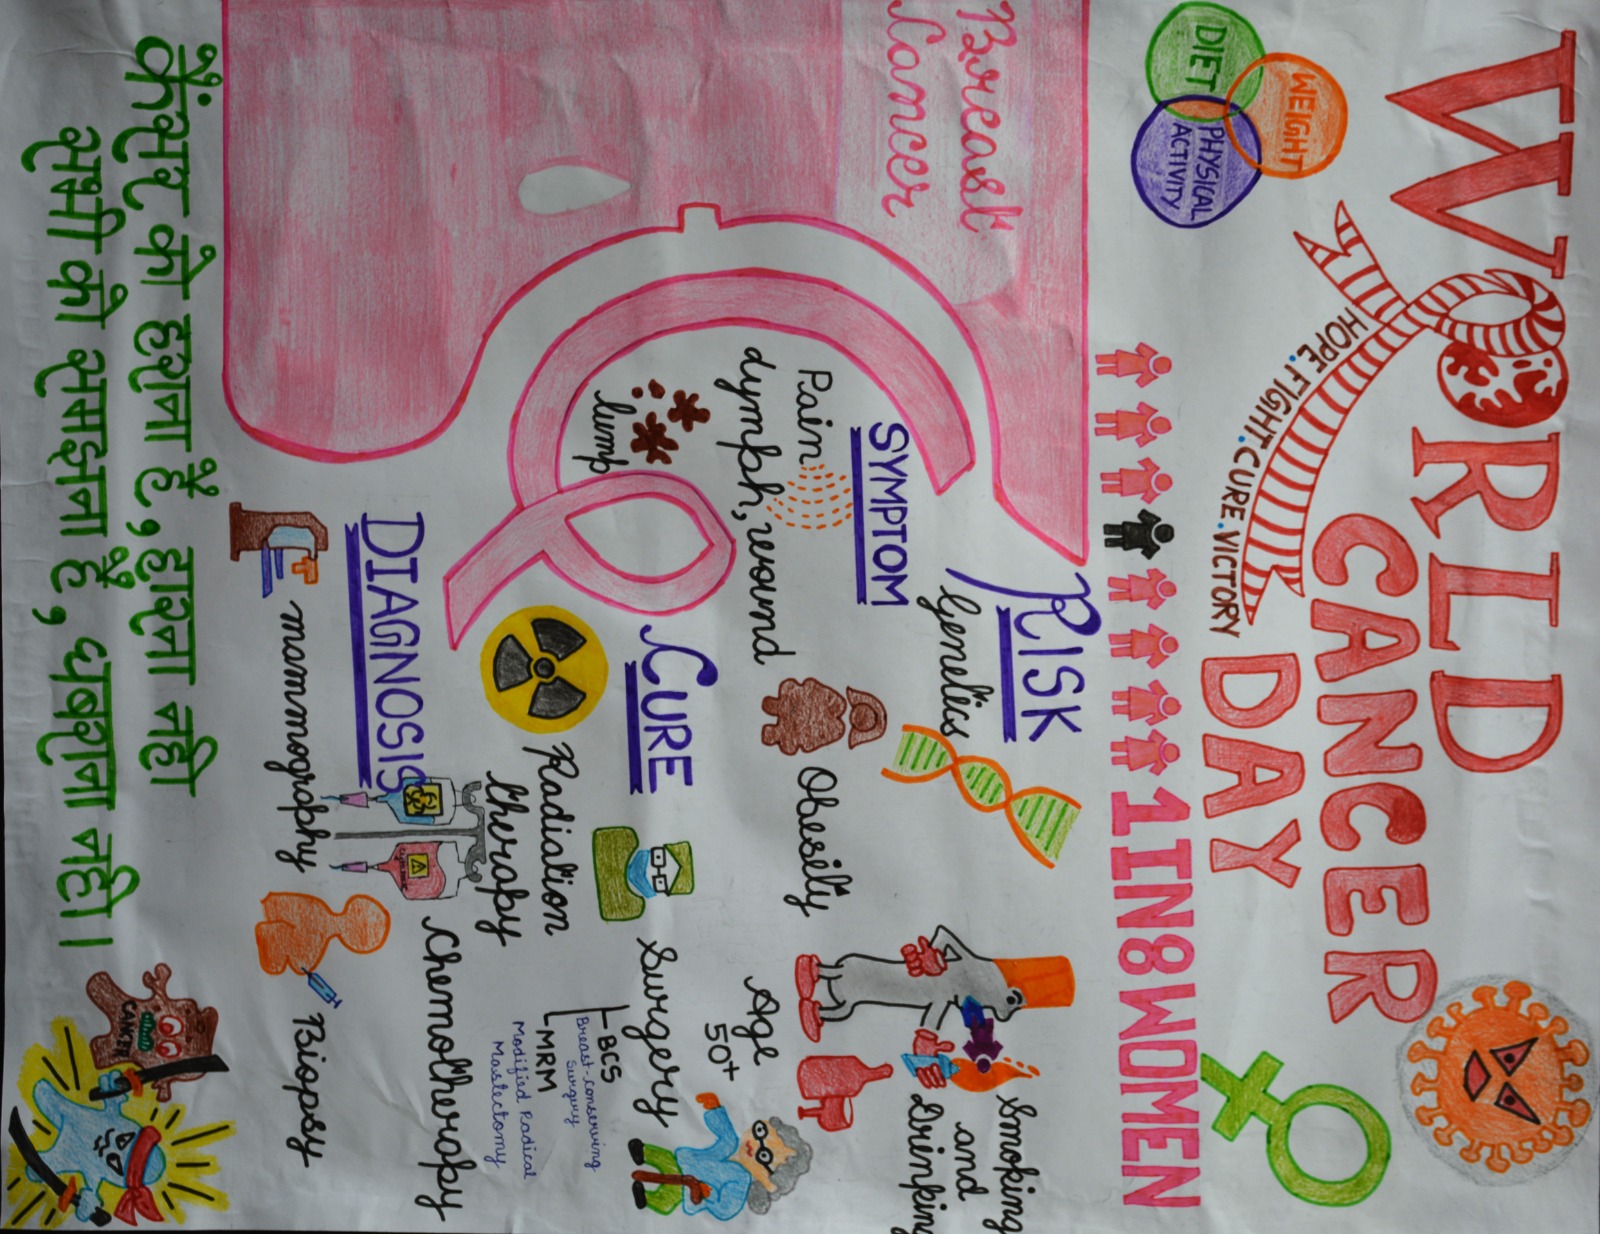 WORLD
CANCER
DAY
HOPE.FIGHT.CURE.VICTORY
WEIGHT
DIET
PHYSICAL
ACTIVITY
1 IN 8 WOMEN
Breast
Cancer
RISK
Genetics
Smoking
and
Drinking
Obesity
Age
50+
SYMPTOM
Pain
dymph, wound
lump
CURE
Surgery
BCS
Breast-conserving
surgery
MRM
Modified Radical
Mastectomy
Radiation
therapy
Chemotherapy
DIAGNOSIS
mammography
Biopsy
CANCER
कैंसर को हराना है, हारना नहीं
सभी को समझाना है, घबराना नहीं।